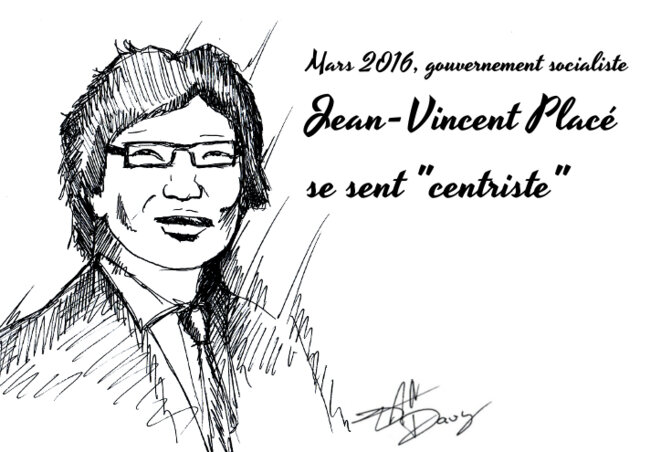 Mars 2016, gouvernement socialiste
Jean-Vincent Placé
se sent "centriste"
Davy